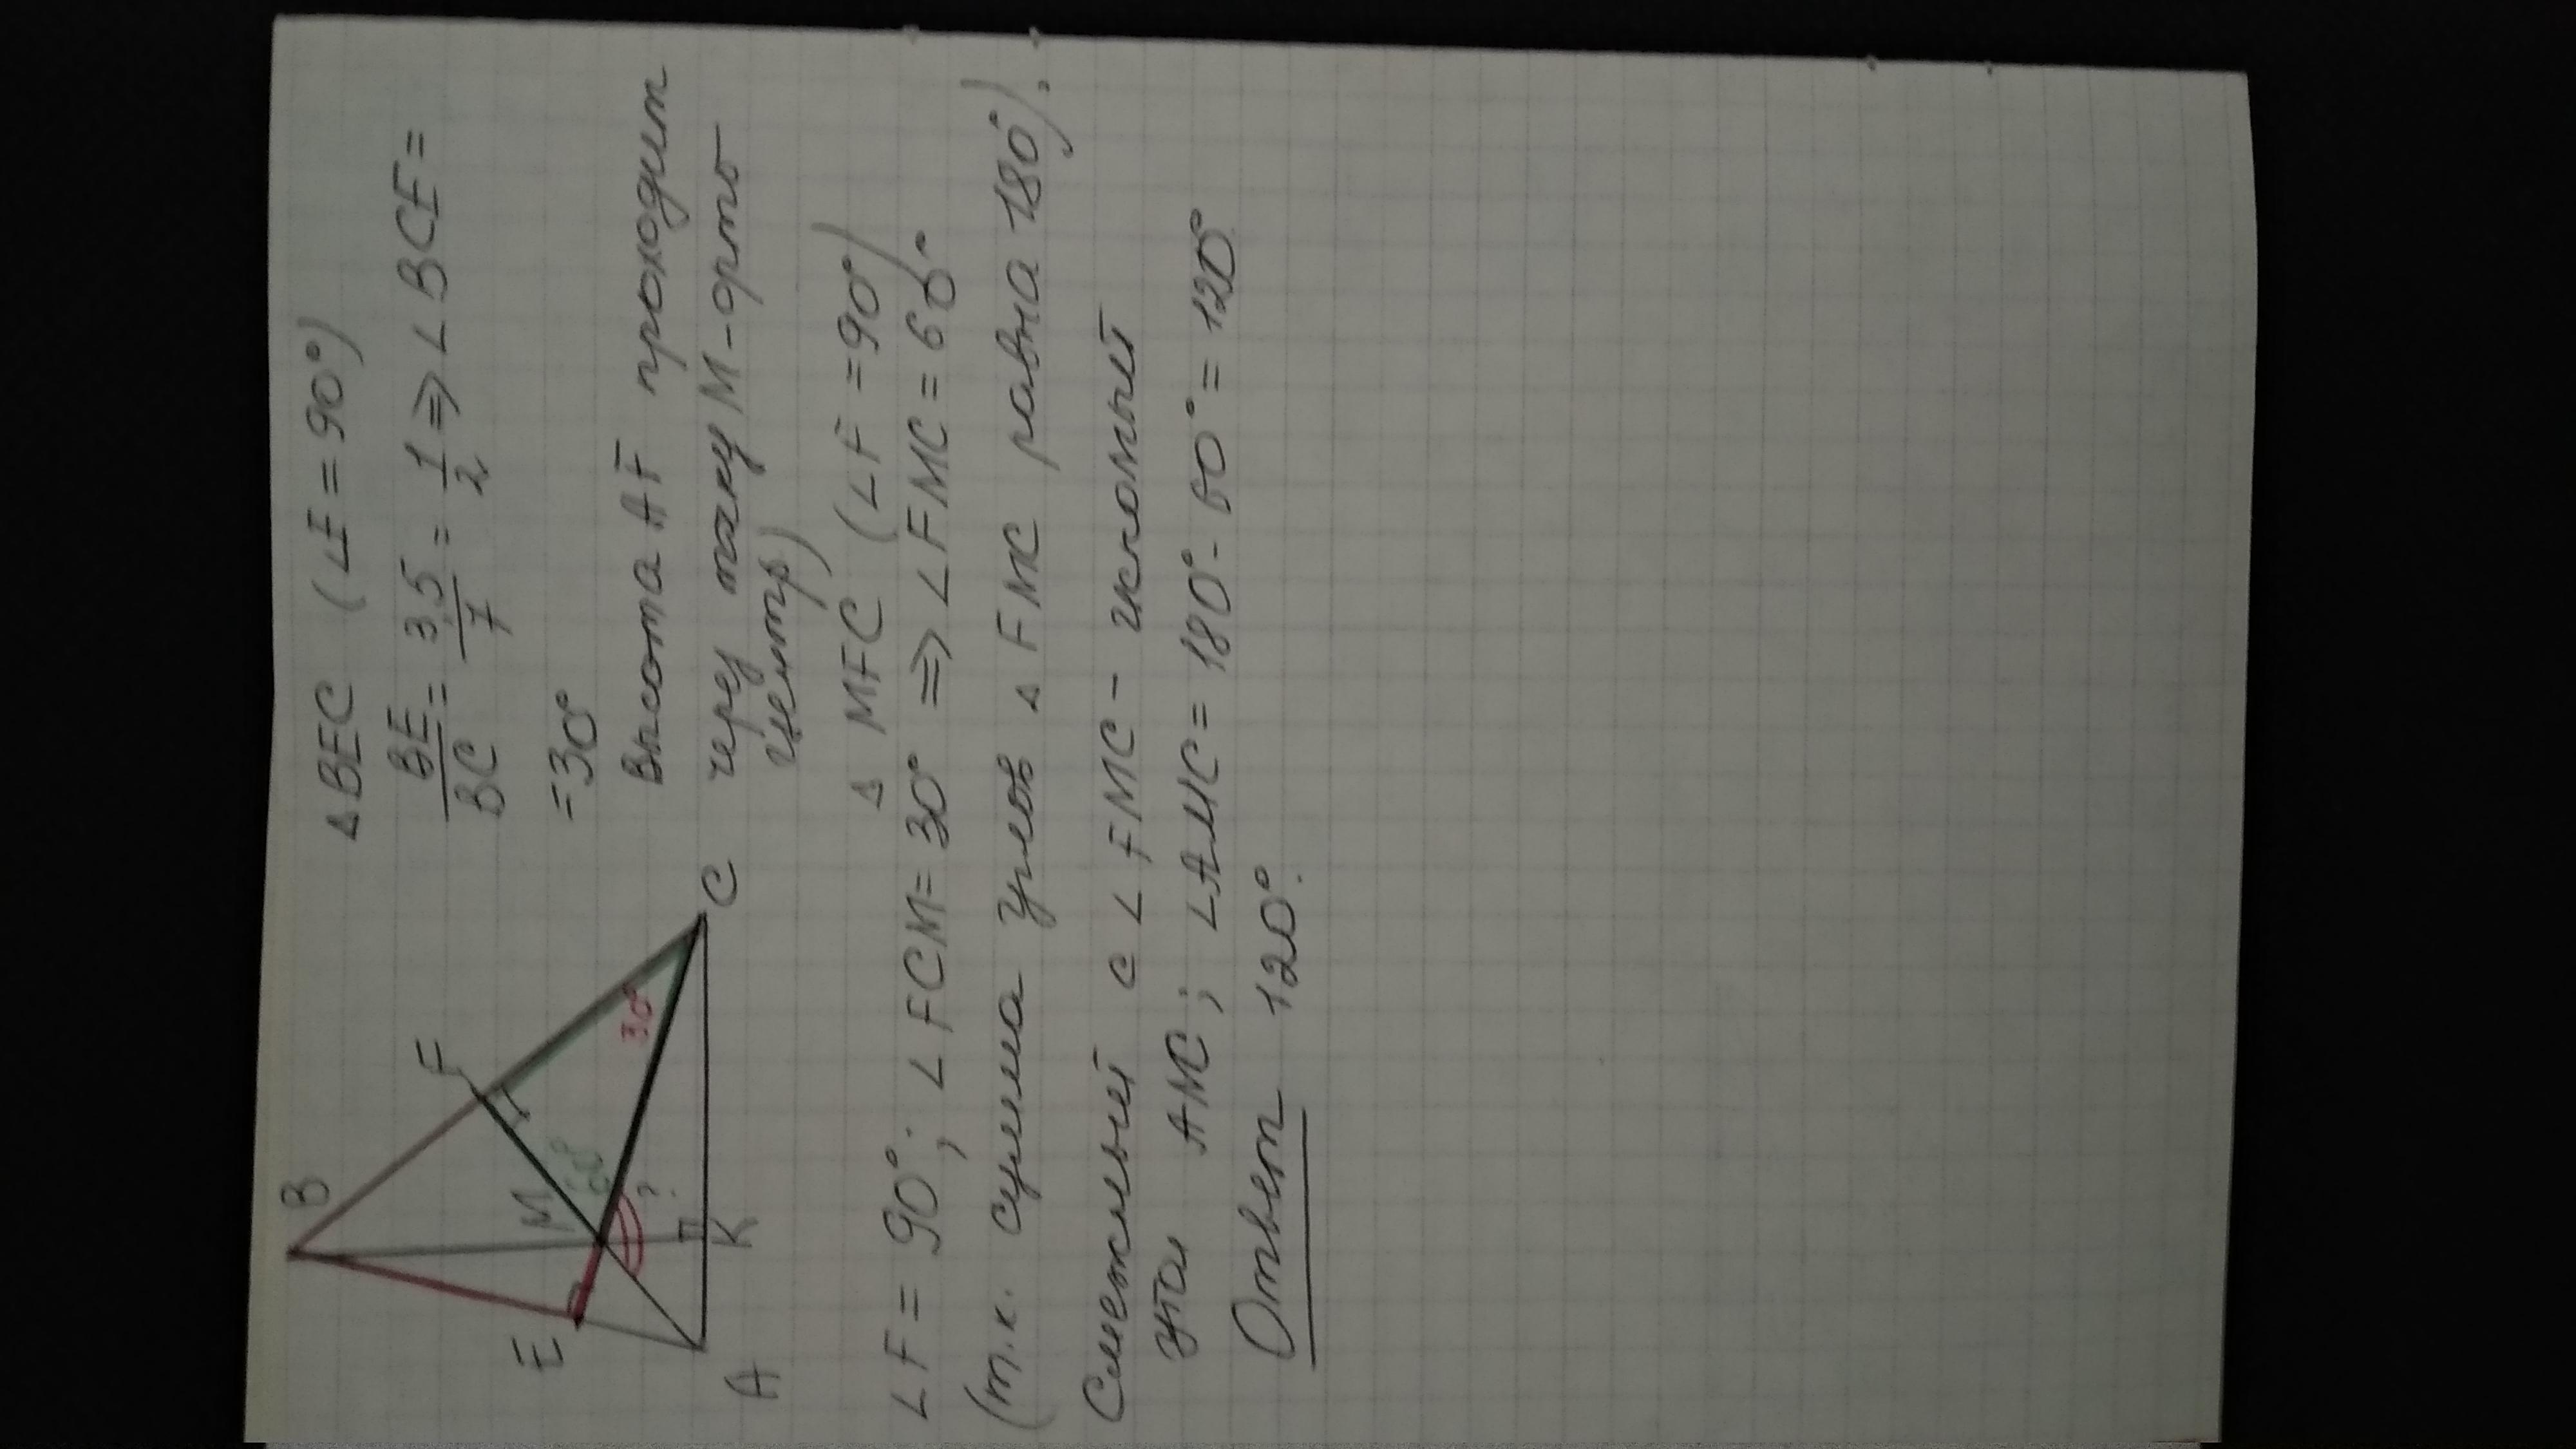 B
F
M
60°
30°
E
?
A
K
C
△BEC (∠E = 90°)
BE/BC = 3,5/7 = 1/2 ⇒ ∠BCE =
= 30°
Высота AF проходит
через точку M-орто
центр)
△ MFC (∠F = 90°)
∠F = 90°; ∠FCM = 30° ⇒ ∠FMC = 60°
(т.к. сумма углов △ FMC равна 180°).
Смежный с ∠FMC - искомый
угол AMC; ∠AMC = 180° - 60° = 120°
Ответ 120°.